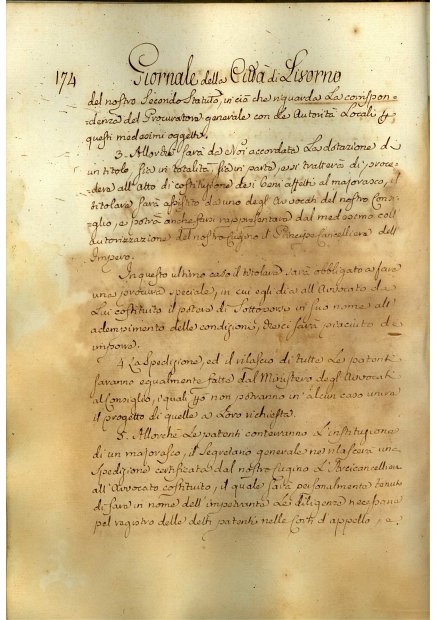 174 Giornale della Città di Livorno
del nostro Secondo Statuto, in ciò che riguarda La corrispon=
denza del Procuratore generale con Le Autorità Locali
questi medesimi oggetti.
3. Allorchè sarà da Noi accordata La dotazione di
un titolo sia in totalità, sia in parte, e si tratterà di proce=
dere all'atto di costituzione de' Beni affetti al majorasco, il
titolare sarà assistito da uno degl' Avvocati del nostro Con=
siglio, e potrà anche farsi rappresentare dal medesimo coll'
Autorizzazione del nostro Cugino il Principe Cancelliere dell'
Impero.
In questo ultimo caso il titolare sarà obbligato a fare
una procura speciale, in cui egli dia all'Avvocato da
Lui costituito il potere di Sottoporre in suo nome all'
adempimento delle condizioni, che ci sarà piaciuto d'
imporre.
4. La Spedizione, ed il rilascio di tutte Le patenti
saranno egualmente fatte dal Ministero degl'Avvocati
al Consiglio, i quali non potranno in alcun caso unire
il progetto di quelle a Loro richiesta.
5. Allorchè Le patenti conterranno L'instituzione
di un majorasco, il Segretario generale ne rilascerà una
Spedizione certificata dal nostro Cugino L'Arcicancelliere
all'Avvocato costituito, il quale sarà personalmente tenuto
di fare in nome dell'impetrante Le diligenze necessarie
pel registro delle dette patenti nelle Corti d'appello, e